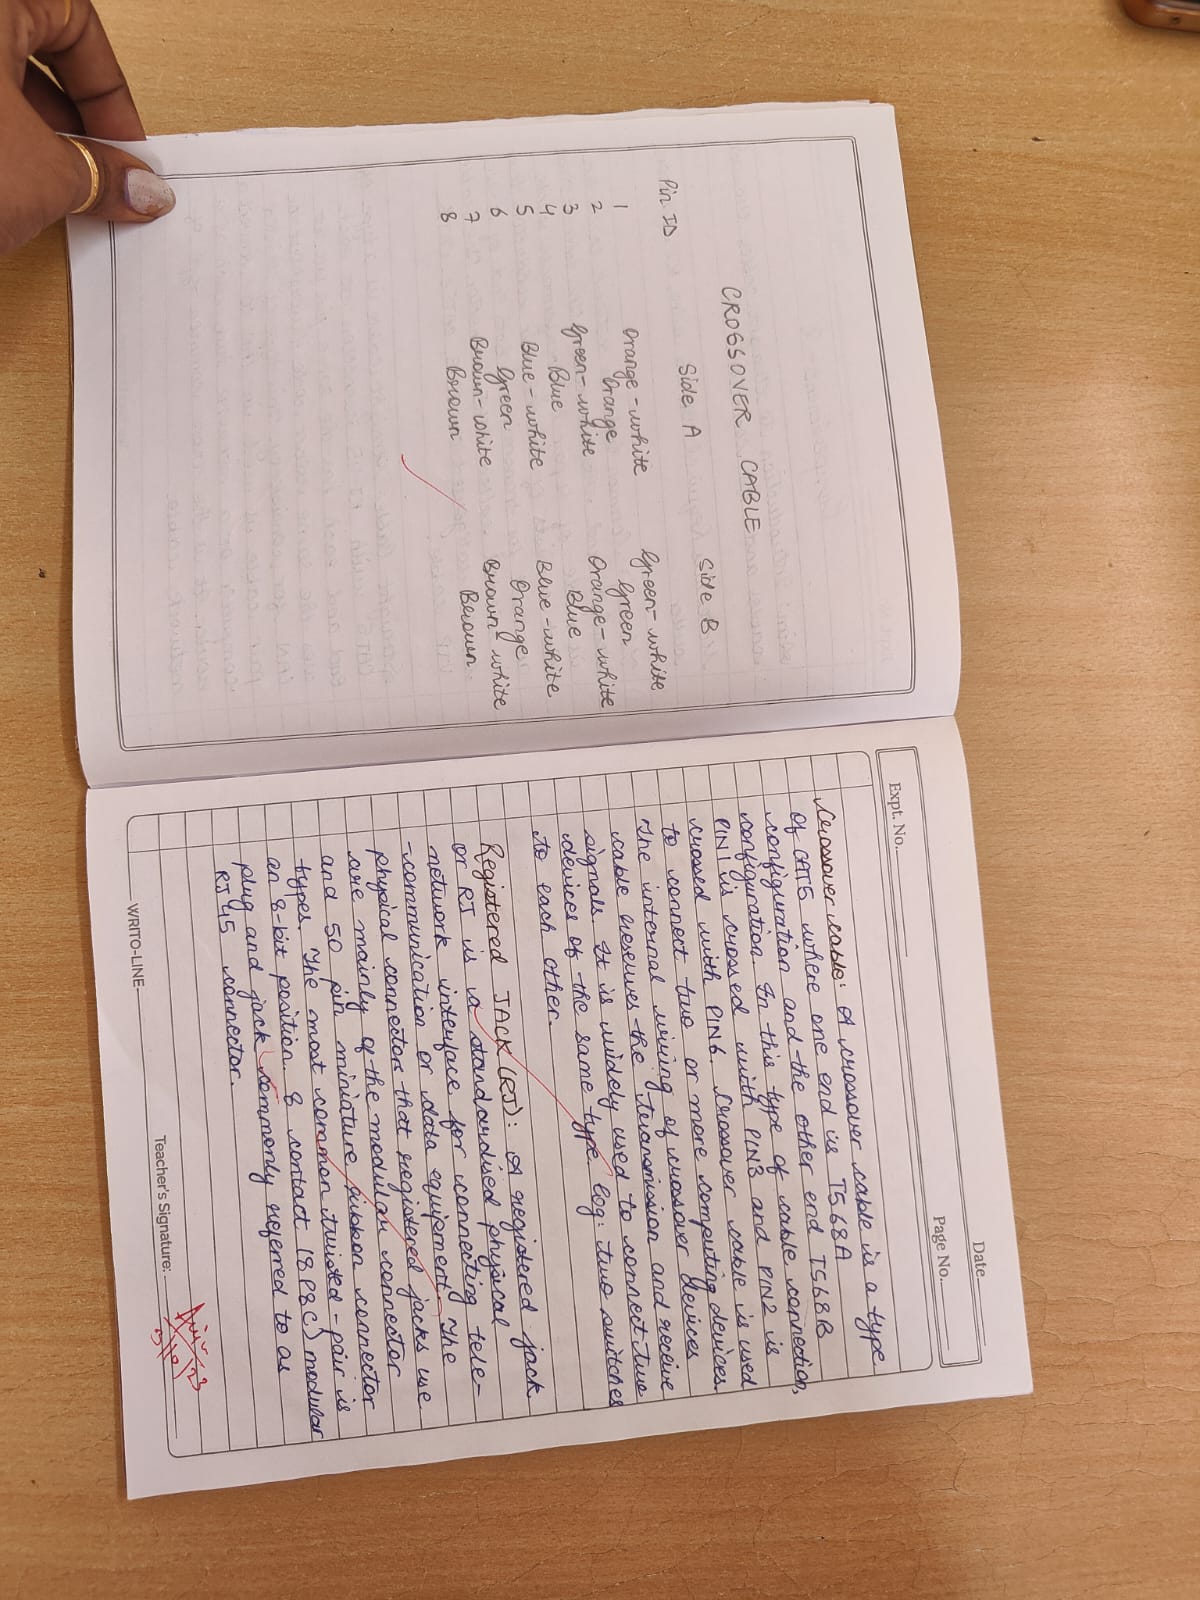 CROSSOVER CABLE
Pin ID Side A Side B
1 Orange-white Green-white
2 Orange Green
3 Green-white Orange-white
4 Blue Blue
5 Blue-white Blue-white
6 Green Orange
7 Brown-white Brown-white
8 Brown Brown.
Date
Expt. No. Page No.
Crossover cable: A crossover cable is a type
of CAT5 where one end is T568A
configuration and the other end T568B
configuration. In this type of cable connection,
PIN1 is crossed with PIN3 and PIN2 is
crossed with PIN6. Crossover cable is used
to connect two or more computing devices.
The internal wiring of crossover devices
cable reserves the transmission and receive
signals. It is widely used to connect two
devices of the same type log: two switches
to each other.
Registered JACK (RJ): A registered jack
or RJ is a standardised physical
network interface for connecting tele-
-communication or data equipment. The
physical connectors that registered jacks use
are mainly of the modular connector
and 50 pin miniature ribbon connector
types. The most common twisted-pair is
an 8-bit position. 8 contact (8P8C) modular
plug and jack commonly referred to as
RJ45 connector.
WRITO-LINE
Teacher's Signature: